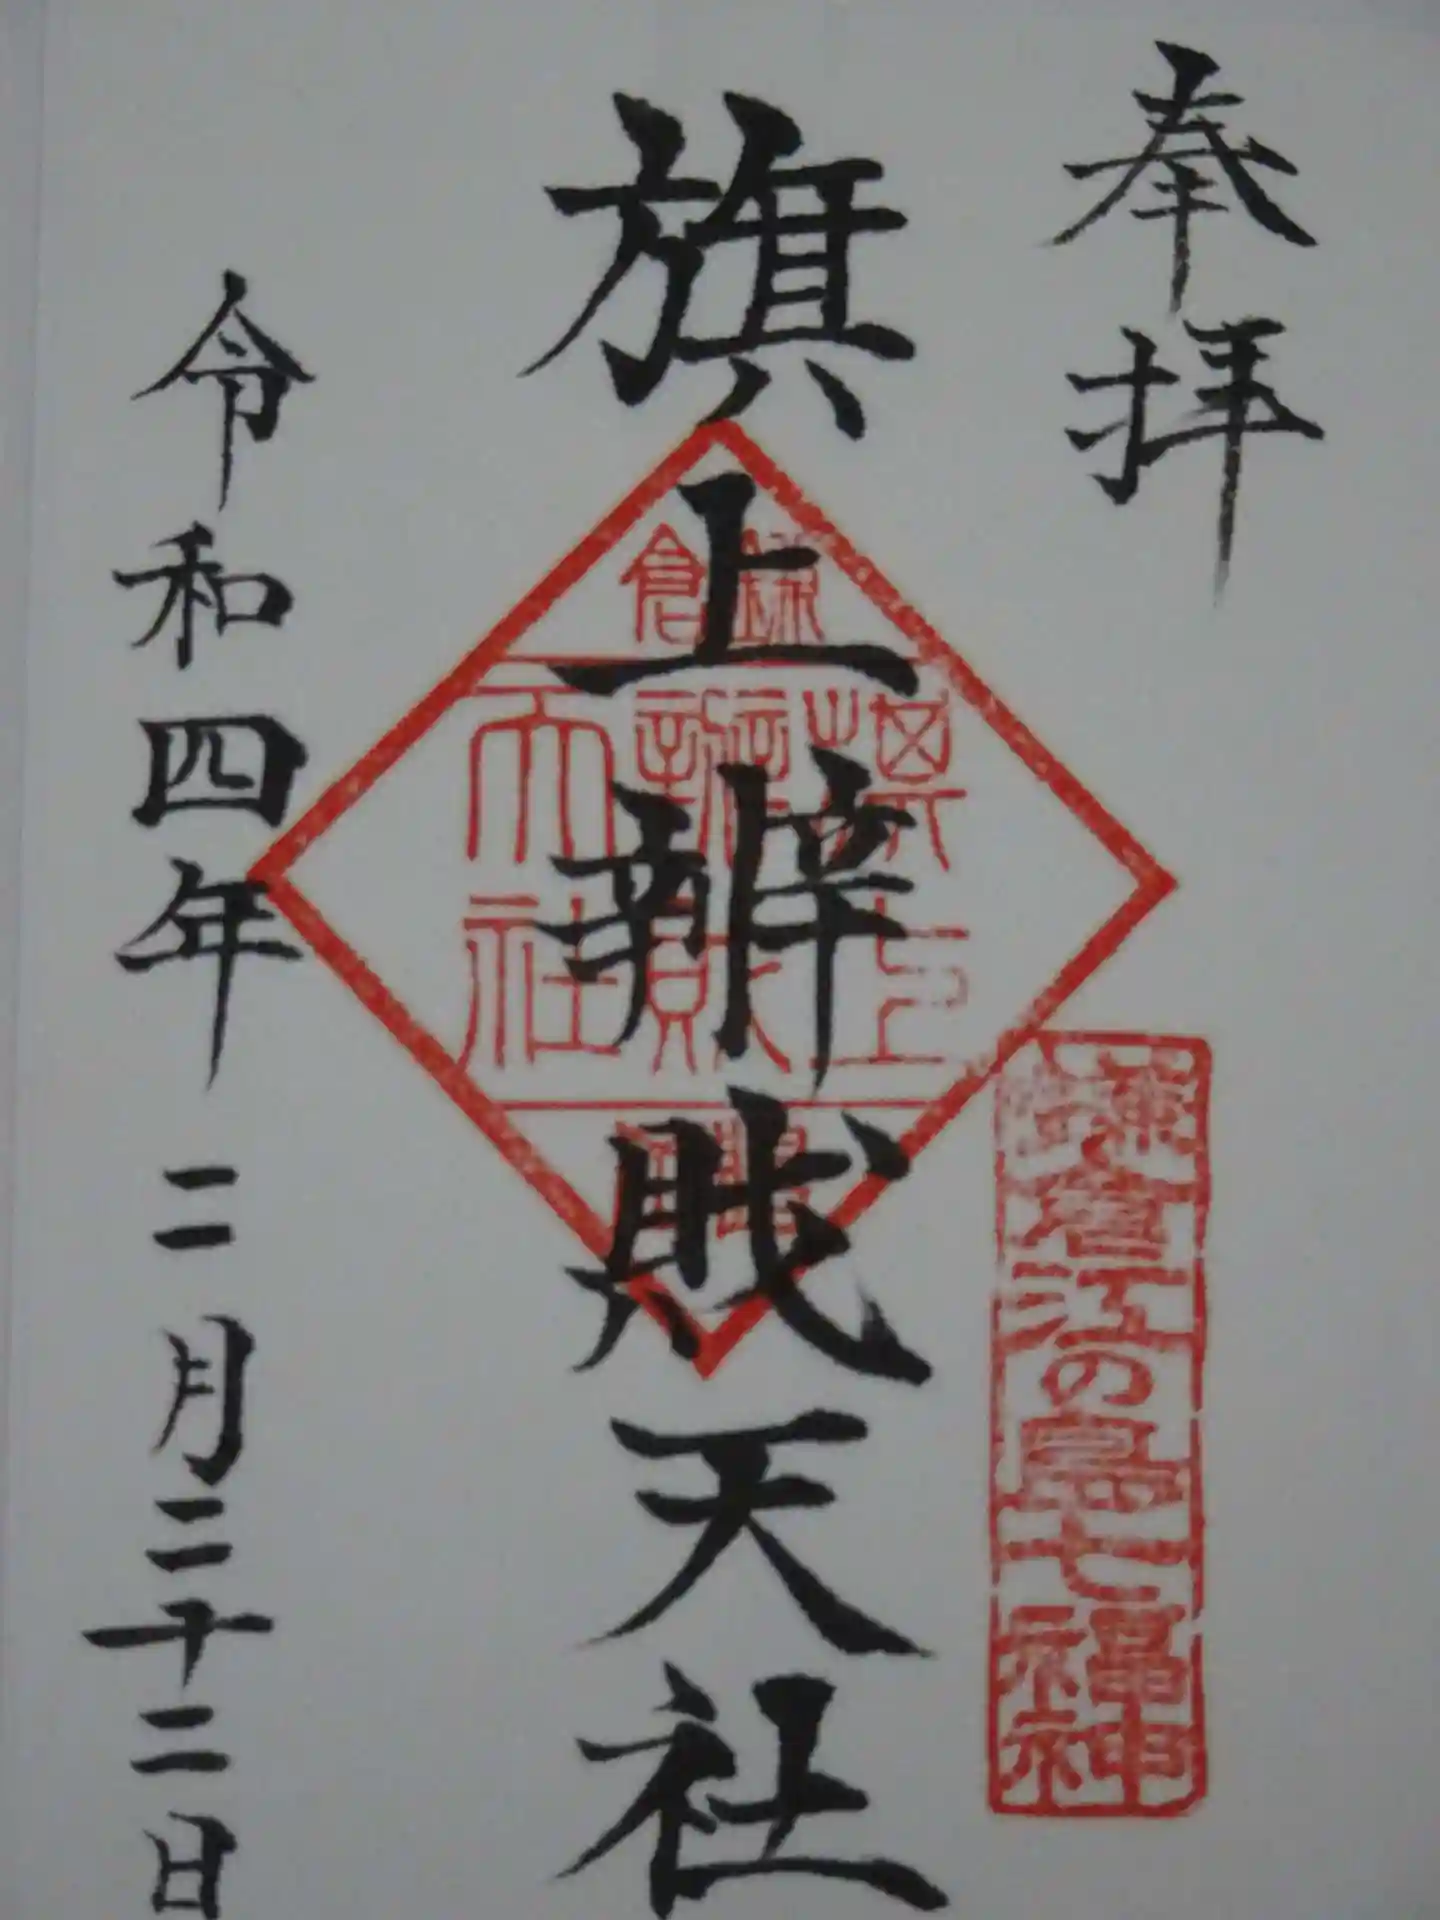 奉拝
鎌倉江の島七福神
旗上辨財天社
鎌倉
旗上
辯財
天社
令和四年二月二十二日